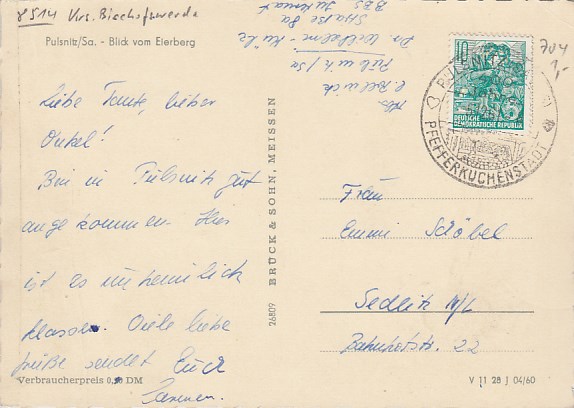 8514 Krs. Bischofswerda
Pulsnitz/Sa. - Blick vom Eierberg
Liebe Tante, lieber
Onkel!
Bin in Pulsnitz gut
angekommen. Hier
ist es unheimlich
klasse. Viele liebe
Grüße sendet Euch
Carmen.
Verbraucherpreis 0,20 DM
26809 BRÜCK & SOHN, MEISSEN
Abs.
Pulsnitz/Sa
Dr. Wilhelm-Külz
Straße 8a
BBS
10
DEUTSCHE
DEMOKRATISCHE REPUBLIK
PULSNITZ
PFEFFERKUCHENSTADT
704
1,-
Frau
Emmi Schöbel
Sedlitz N/L
Bahnhofstr. 22
V 11 28 J 04/60